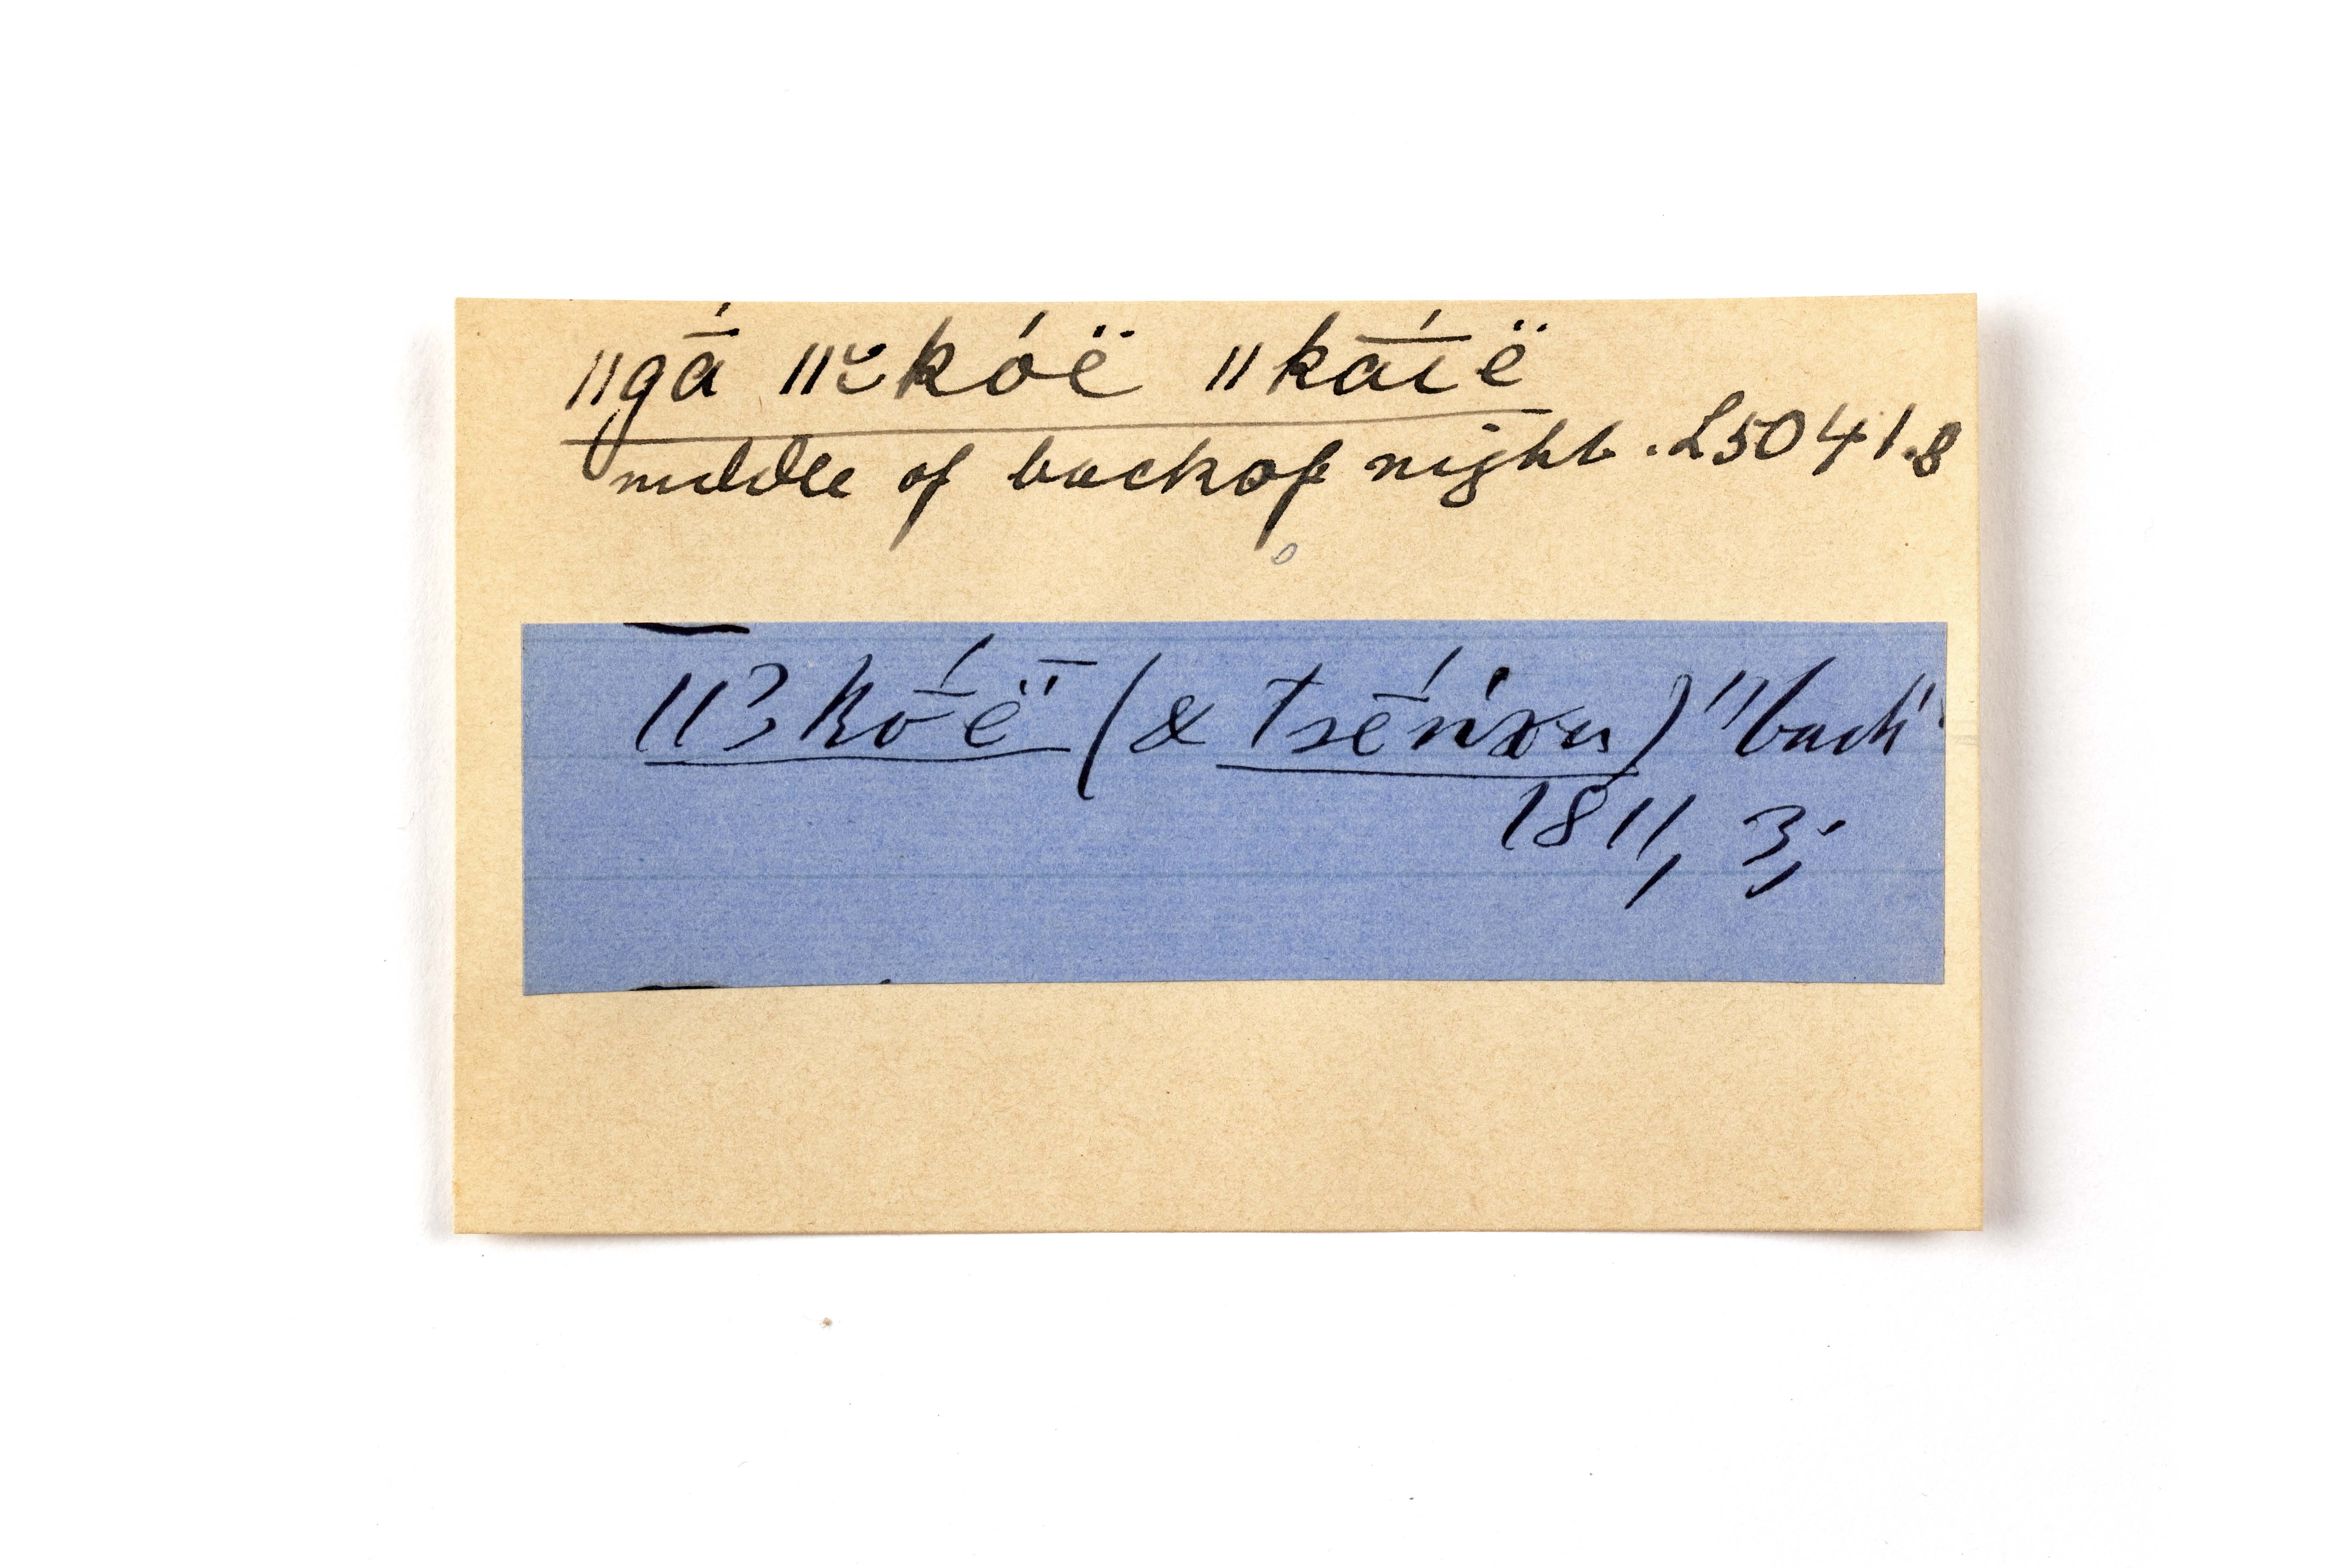 ǁgā́ ǁ꜀kóë ǁkā́ı̄ë
middle of back of night . L5041.8
ǁʒkṓë̄ (& tsḗńxu) "back"
1811, 3;